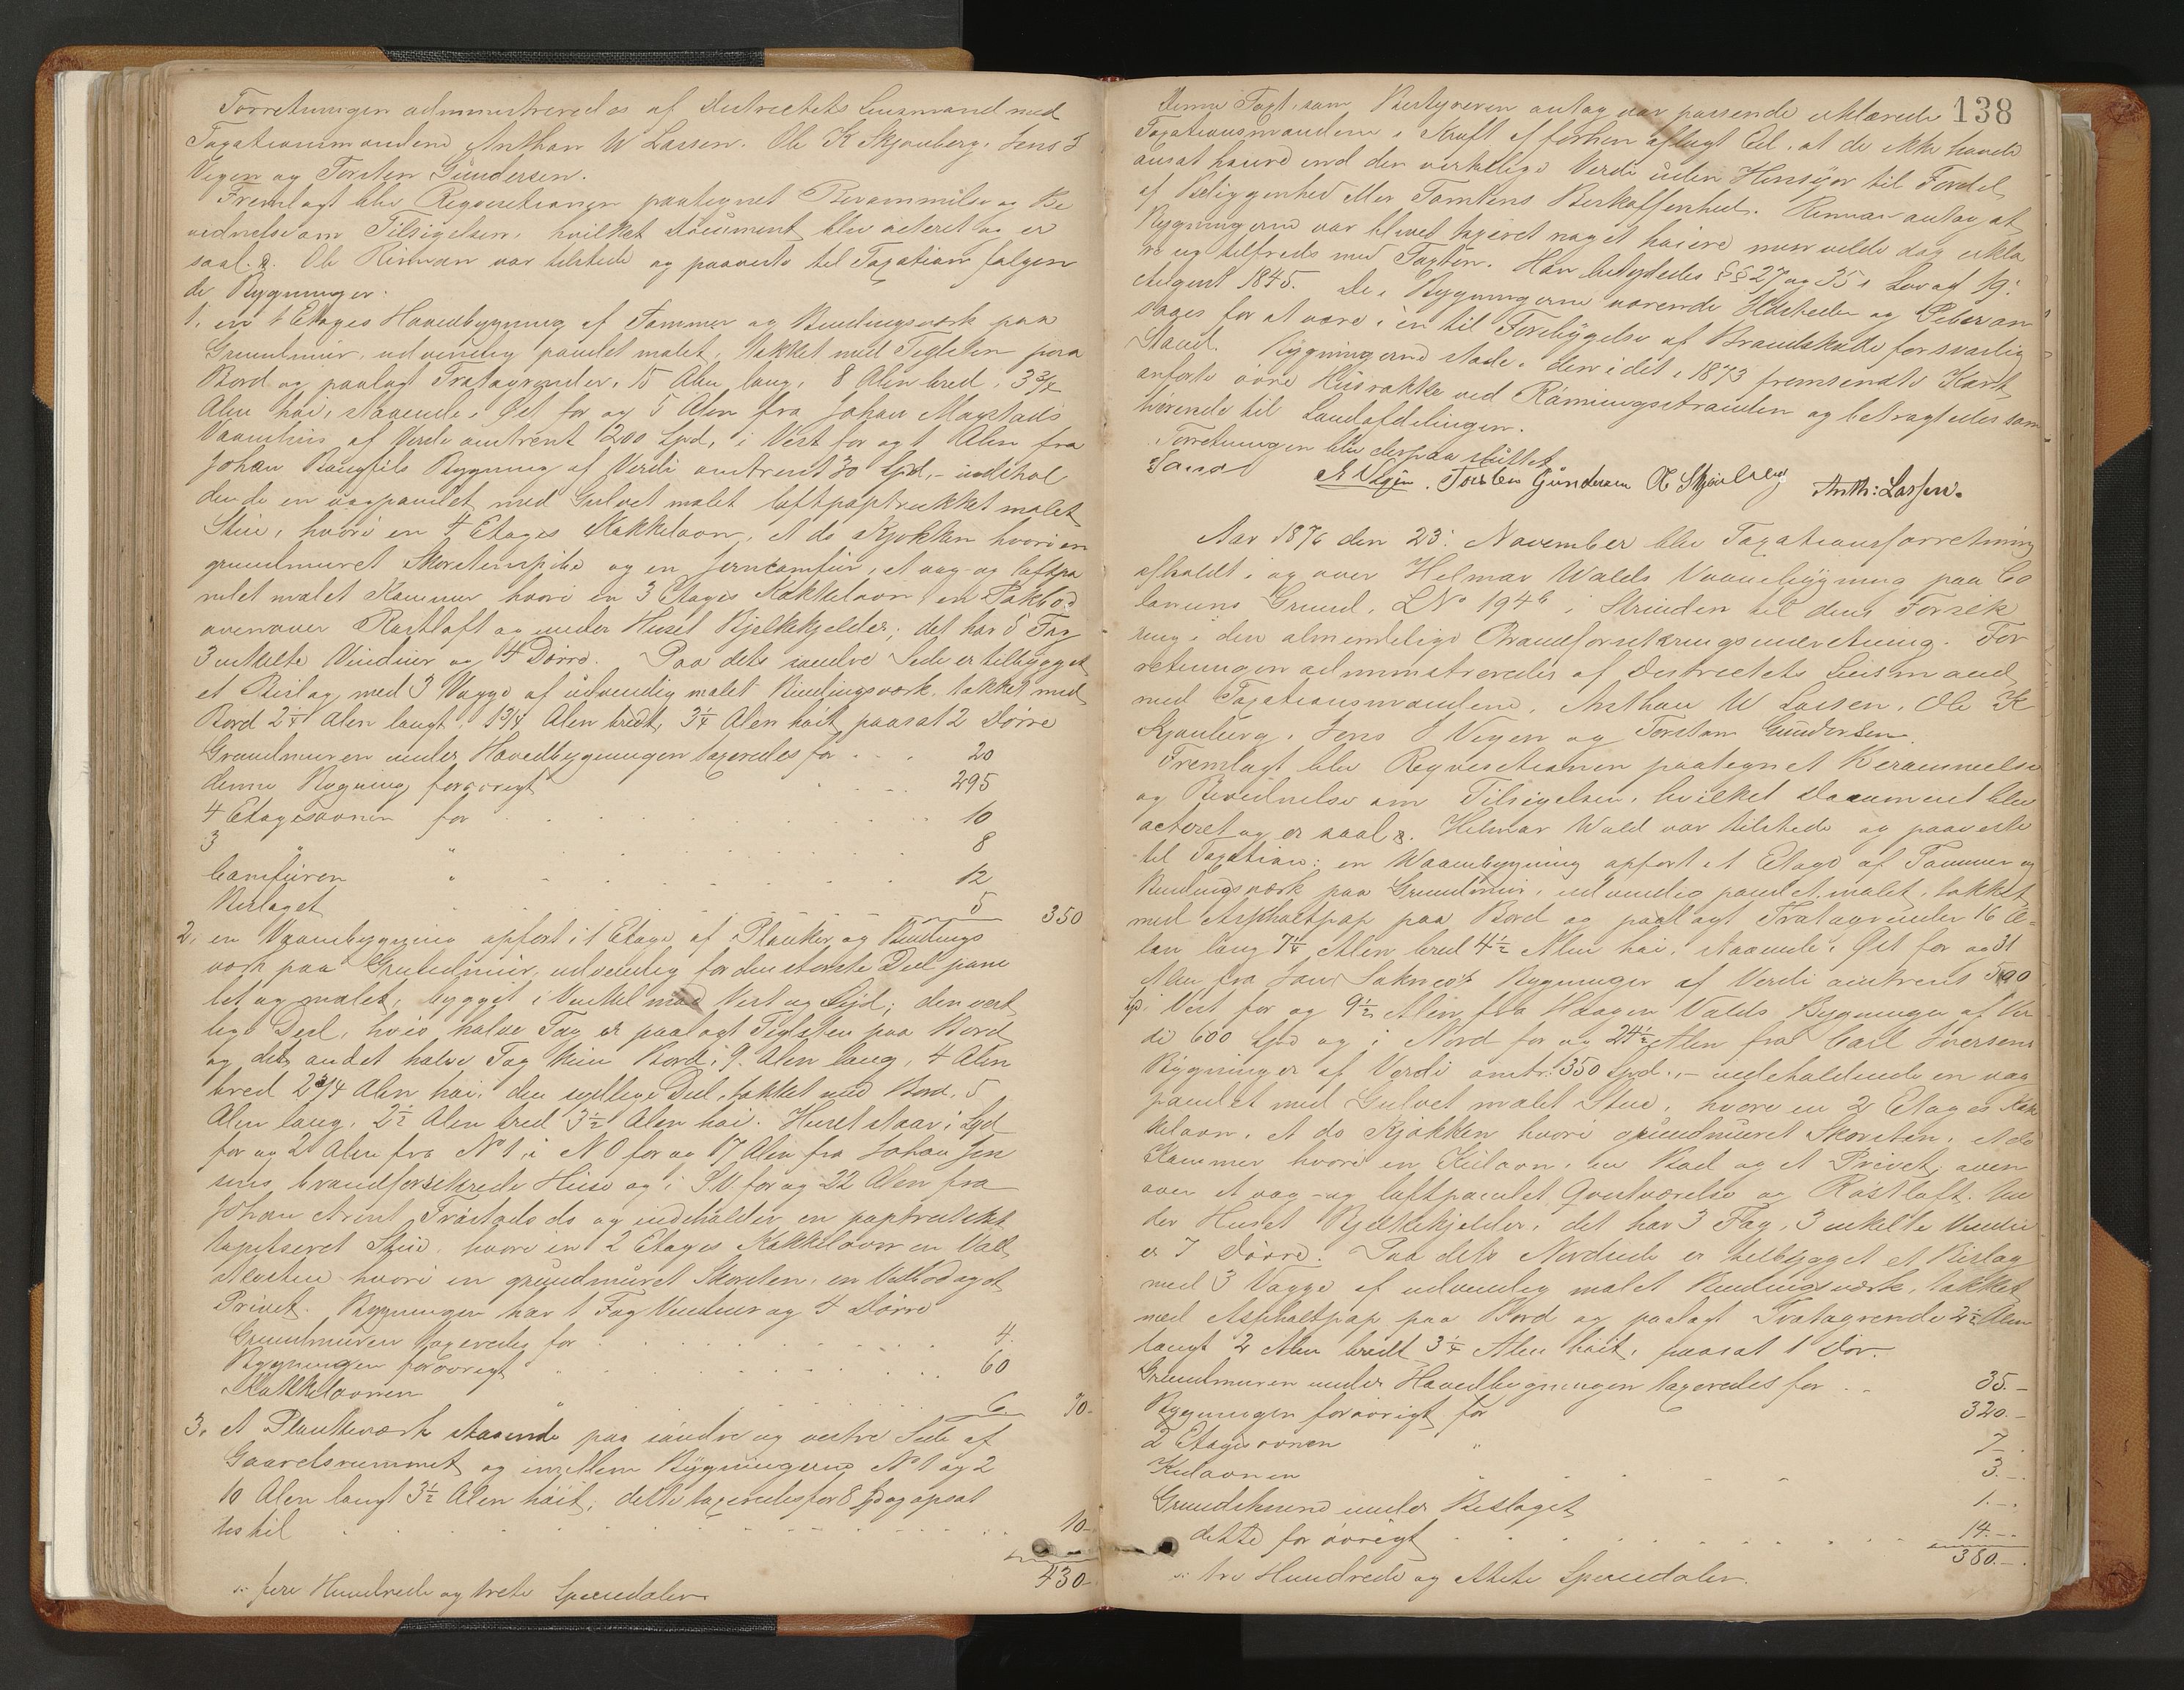 Forretningen administreredes af Districtets Lensmand med
Taxationsmændene Anthon W Lassen. Ole K Skjønberg. Jens J
Vigen og Torsten Gundersen.
Fremlagt blev Reqvisitionen paategnet Berammelse og Be
vidnelse om Tilsigelsen. hvilket Document blev acteret og er
saal. Ole Rinnan var tilstede og paaviste til Taxation følgen
de Bygninger.
1. en 1 Etages Hovedbygning af Tømmer og Bindingsværk paa
Grundmuur, udvendig panelet malet, tækket med Teglsten paa
Bord og paalagt Trætagrender. 15 Alen lang, 8 Alen bred, 3 3/4
Alen høi, staaende i Øst for og 5 Alen fra Johan
Vaanhus af Verdi omtrent 1200 Spd, i Vest for og 1 Alen fra
Johan Bygning af Verdi omtrent 30 Spd, - indehol
dende en vægpanelet med Gulvet malet loftpaptrukket malet
Stue, hvori en 4 Etages Kakkelovn, et do Kjøkken hvori en
grundmuret Skorstenspibe og en Jerncomfur, et væg- og loftpa
nelet malet Kammer hvori en 3 Etages Kakkelovn, en Pakbod
ovenover Røstloft og under Huset Bjelkekjelder; det har 5 Fag
3 enkelte Vinduer og 4 Dørre. Paa dets søndre Side er tilbygget
et Bislag med 3 Vægge af udvendig malet Bindingsværk, tækket med
Bord 2 1/4 Alen langt, 1 3/4 Alen bredt, 3 1/4 Alen høit paasat 2 Dørre
Grundmuren under Hovedbygningen taxeredes for 20
denne Bygning forøvrigt 295
4 Etagesovnen for 10
3 " 8
Comfuren " 12
Bislaget 5 350
2. en Vaanbygning opført i 1 Etage af Planker og Bindings
værk paa Grundmuur, udvendig for den største Deel pane
let og malet, bygget i Vinkel mod Vest og Syd; den vest
lige Deel, hvis halve Tag er paalagt Teglsten paa Bord
og det andet halve Tag kun Bord, 9 Alen lang, 4 Alen
bred 2 3/4 Alen høi, den sydlige Deel, tækket med Bord, 5
Alen lang, 2 1/2 Alen bred 3 1/2 Alen høi. Huset staar i Syd
for og 2 Alen fra No 1, i NO for og 17 Alen fra Johan Jen
sens brandforsikrede Huse og i SV for og 22 Alen fra
Johan Arent ds og indeholder en paptrukket
tapetseret Stue, hvori en 2 Etages Kakkelovn en
hvori en grundmuret Skorsten, en Vedbod og et
Privet. Bygningen har 1 Fag Vinduer og 4 Dørre
Grundmuren taxeredes for 4.
Bygningen forøvrigt 60
Kakkelovnen 6 70-
3. et Plankeværk staaende paa søndre og vestre Side af
Gaardsrummet og imellem Bygningerne No 1 og 2
10 Alen langt 3 1/2 Alen høit; dette taxeredes for 8 Spd og opsat
tes til 10-
430-
s: fire Hundrede og treti Speciedaler.
138
Denne Taxt, som Bestyreren antog var passende erklærede
Taxationsmændene i Kraft af forhen aflagt Ed, at de ikke havde
ansat høiere end den virkelige Verdi uden Hensyn til Fordel
af Beliggenhed eller Tomtens Beskaffenhed. Rinnan antog at
Bygningerne var blevet taxeret noget høiere men vilde dog erklæ
re sig tilfreds med Taxten. Han betydedes §§ 27 og 35 i Lov af 19:
August 1845. De i Bygningerne værende Ildsteder og Piber an
saaes for at være i en til Forebyggelse af Brandskade forsvarlig
Stand. Bygningerne staar i den i det i 1873 fremsendte Kart
anførte øvre Husrække ved Ræningsstranden og betragtedes som
hørende til Landafdelingen.
Forretningen blev derpaa sluttet
J Vigen. Torsten Gundersen O Skjønberg Anth: Lassen.
Aar 1876 den 23: November blev Taxationsforretning
afholdt i og over Helmar Walds Vaanebygning paa Ca
lanens Grund, LNo 194b i Strinden til dens Forsik
ring i den almindelige Brandforsikringsindretning. For
retningen administreredes af Districtets Lensmand
med Taxationsmændene, Anthon W Lassen, Ole K
Skjønberg, Jens J Vigen og Torsten Gundersen.
Fremlagt blev Reqvisitionen paategnet Berammelse
og Bevidnelse om Tilsigelsen, hvilket Document blev
acteret og er saal. Helmar Wald var tilstede og paaviste
til Taxation: en Waanbygning opført i 1 Etage af Tømmer og
Bindingsværk paa Grundmuur, udvendig panelet malet, tækket
med Asphaltpap paa Bord og paalagt Trætagrender 16 A-
len lang 7 1/4 Alen bred 4 1/2 Alen høi, staaende i Øst for og 31
Alen fra Bygninger af Verdi omtrent 500
Spd. i Vest for og 9 1/2 Alen fra Haagen Valds Bygninger af Ver
di 600 Spd og i Nord for og 24 1/2 Alen fra Carl Iversens
Bygninger af Verdi omtr. 350 Spd., - indeholdende en væg
panelet med Gulvet malet Stue, hvori en 2 Etages Kak
kelovn, et do Kjøkken hvori grundmuret Skorsten, et do
Kammer hvori en Kulovn, en Bod og et Privet; oven
over et væg- og loftpanelet Qvistværelse og Røstloft. Un
der Huset Bjelkekjelder; det har 3 Fag, 3 enkelte Vindu
er 7 Dørre. Paa dets Nordside er tilbygget et Bislag
med 3 Vægge af udvendig malet Bindingsværk, tækket
med Asphaltpap paa Bord og paalagt Trætagrende 2 1/2 Alen
langt 2 Alen bredt 3 1/4 Alen høit, paasat 1 Dør.
Grundmuren under Hovedbygningen taxeredes for 35.-
Bygningen forøvrigt for 320.-
2 Etagesovnen " 7-.
Kulovnen 3.-.
under Bislaget 1.-.
dette forøvrigt 14.--
380.-.
s: tre Hundrede og Otteti Speciedaler.